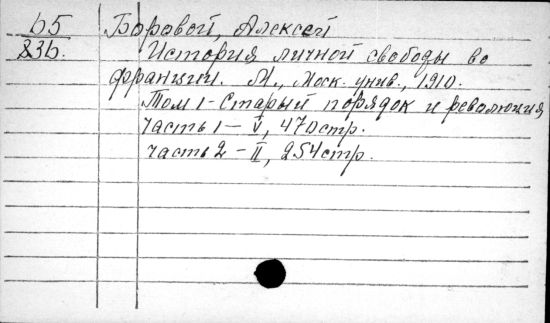 b5 Боровой, Алексей
83b. История личной свободы во
Франции. М., Моск. унив., 1910.
Том 1 - Старый порядок и революция
Часть 1 - V, 470 стр.
Часть 2 - II, 254 стр.